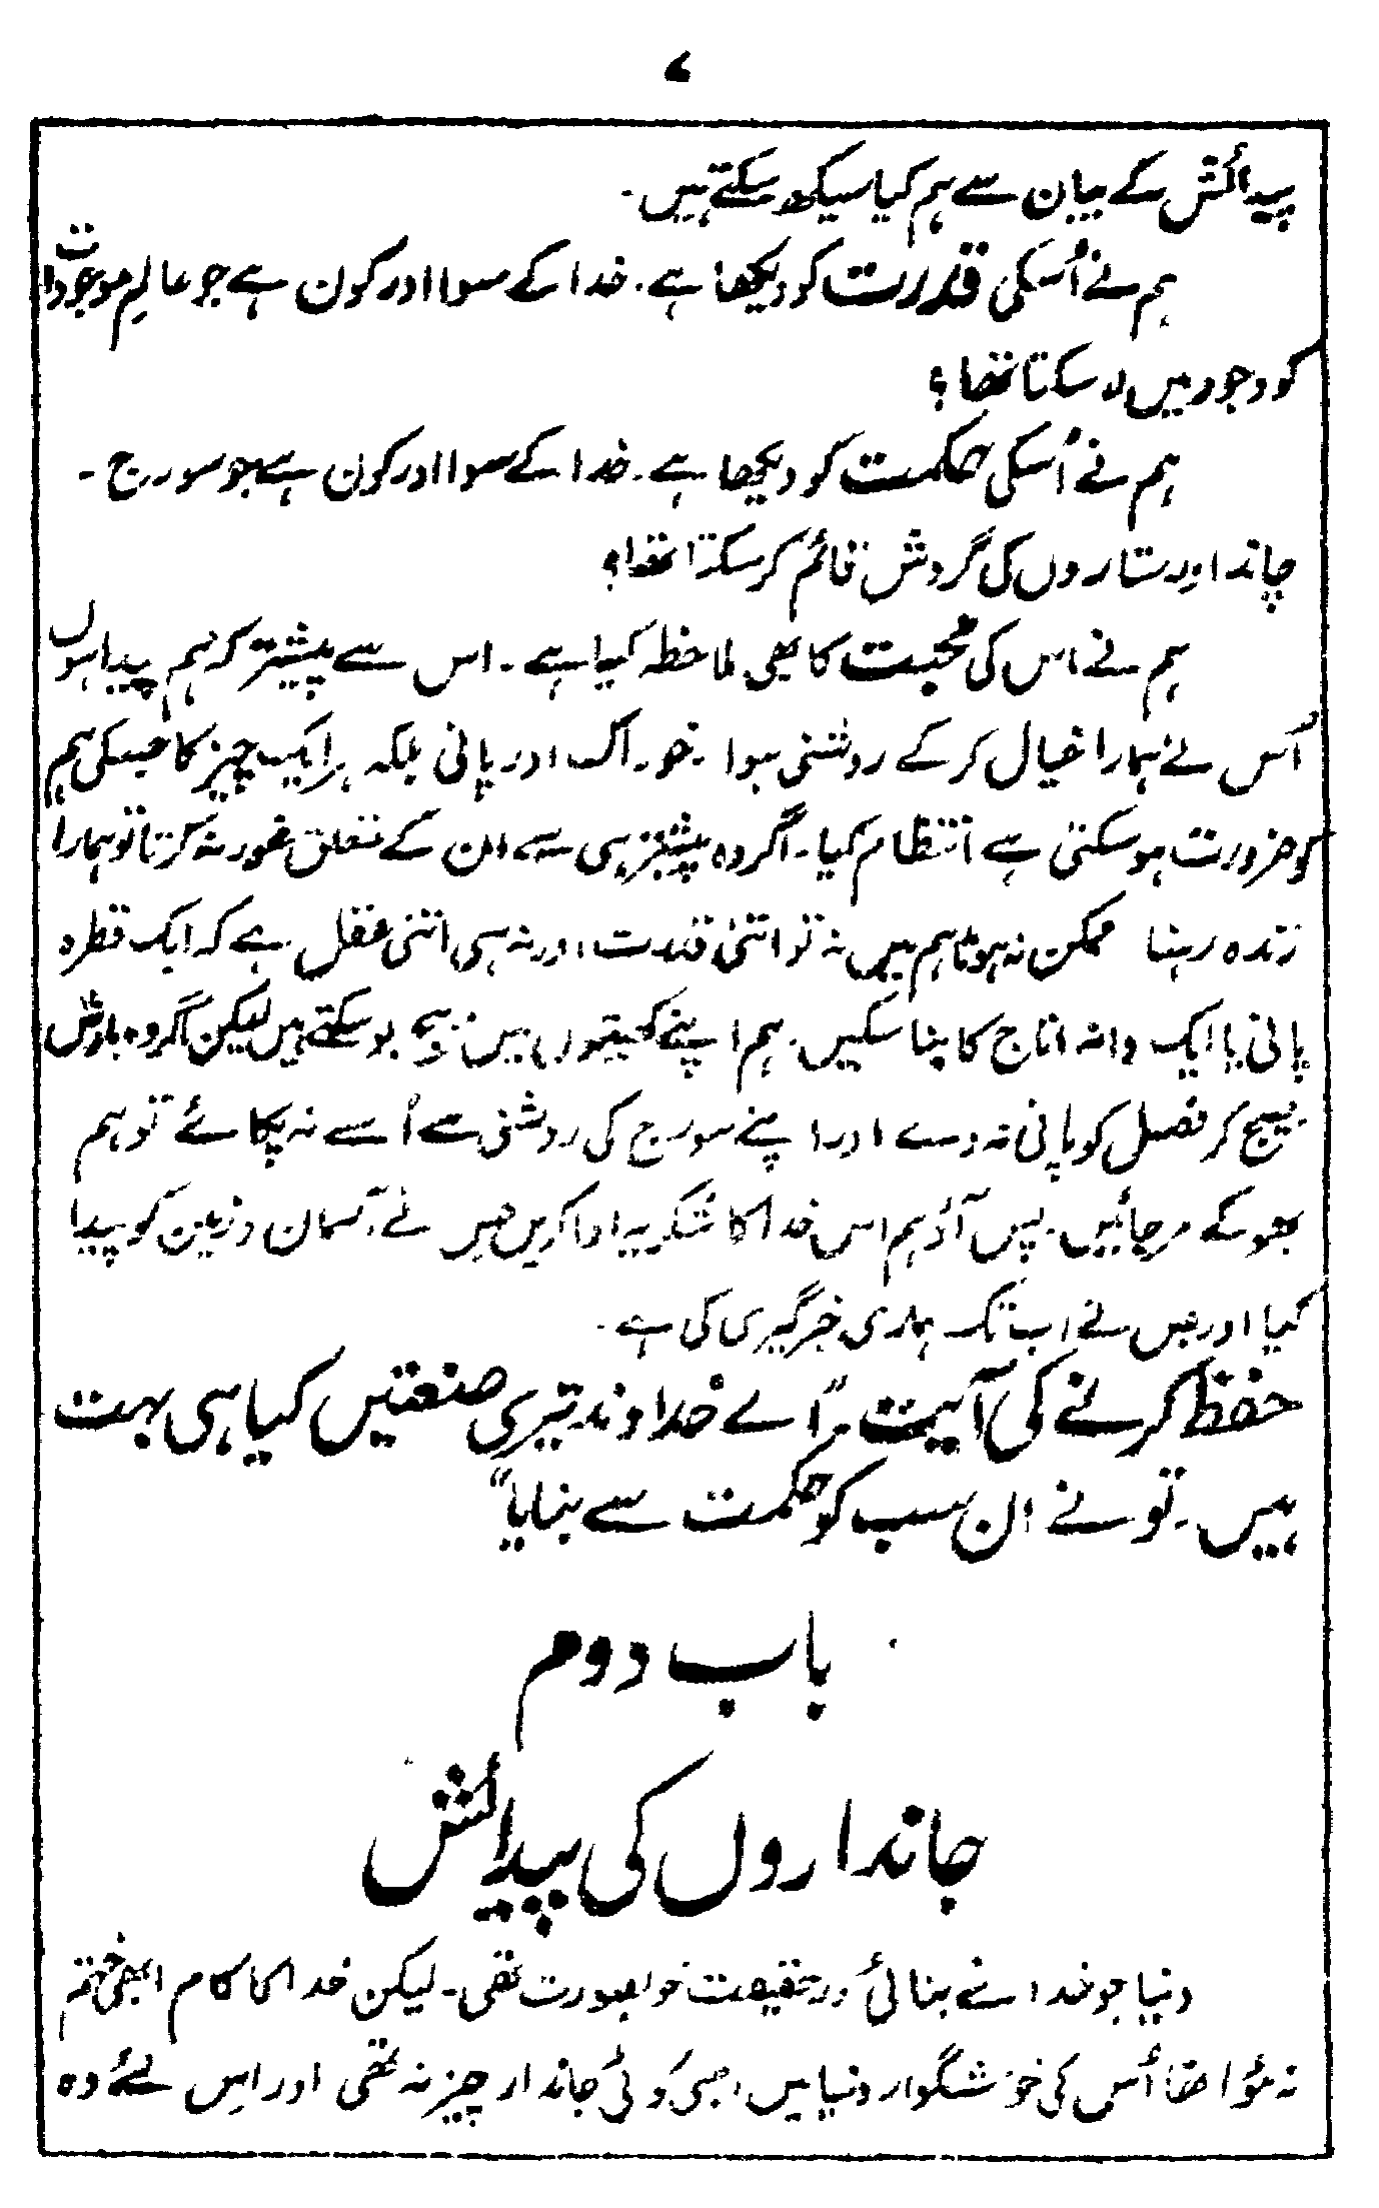 ۷
پیدائش کے بیان سے ہم کیا سیکھ سکتے ہیں۔
ہم نے اُسکی قدرت کو دیکھا ہے۔ خدا کے سوا اور کون ہے جو عالمِ موجودات
کو وجود میں لا سکتا تھا؟
ہم نے اُسکی حکمت کو دیکھا ہے۔ خدا کے سوا اور کون ہے جو سورج ۔
چاند اور ستاروں کی گردش قائم کر سکتا تھا؟
ہم نے اس کی محبت کا بھی ملاحظہ کیا ہے۔ اس سے پیشتر کہ ہم پیدا ہوں
اُس نے ہمارا خیال کر کے روشنی ہوا ۔ خوراک اور پانی بلکہ ہر ایک چیز کا جسکی ہم
کو ضرورت ہو سکتی ہے انتظام کیا۔ اگر وہ پیشتر ہی سے ان کے متعلق غور نہ کرتا تو ہمارا
زندہ رہنا ممکن نہ ہوتا ہم میں نہ تو اتنی قدرت اور نہ ہی اتنی عقل ہے کہ ایک قطرہ
پانی یا ایک دانہ اناج کا بنا سکیں۔ ہم اپنے کھیتوں میں بیج بو سکتے ہیں لیکن اگر وہ بارش
بھیج کر فصل کو پانی نہ دے اور اپنے سورج کی روشنی سے اُسے نہ پکائے تو ہم
بھوکے مر جائیں۔ پس آؤ ہم اس خدا کا شکریہ ادا کریں جس نے آسمان و زمین کو پیدا
کیا اور جس نے اب تک ہماری خبر گیری کی ہے۔
حفظ کرنے کی آیت۔ "اے خداوند تیری صنعتیں کیا ہی بہت
ہیں۔ تو نے ان سب کو حکمت سے بنایا"
باب دوم
جانداروں کی پیدائش
دنیا جو خدا نے بنائی درحقیقت خوبصورت تھی۔ لیکن خدا کا کام ابھی ختم
نہ ہؤا تھا اُس کی خوشگوار دنیا میں ابھی کوئی جاندار چیز نہ تھی اور اِس لئے وہ